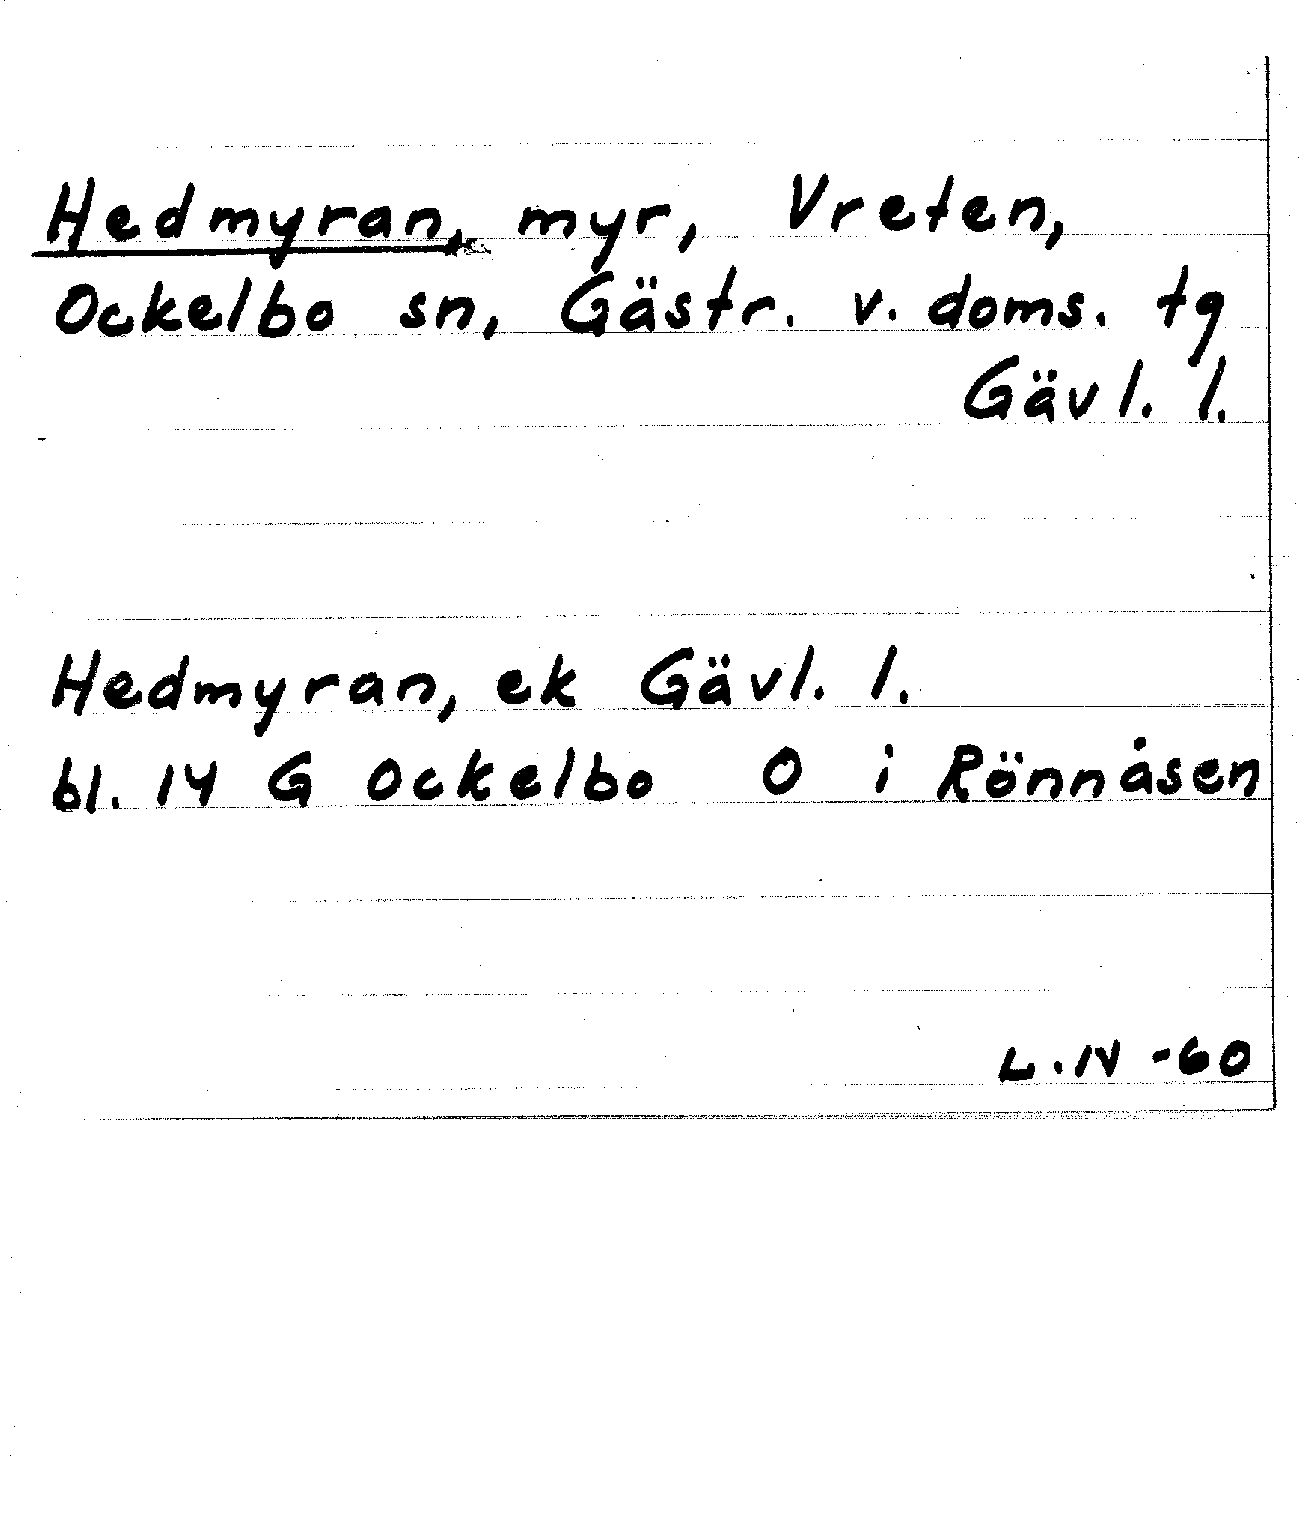 Hedmyran, myr, Vreten,
Ockelbo sn, Gästr. v. doms. tg
Gävl. l.
Hedmyran, ek Gävl. l.
bl. 14 G Ockelbo O i Rönnåsen
L. IV -60